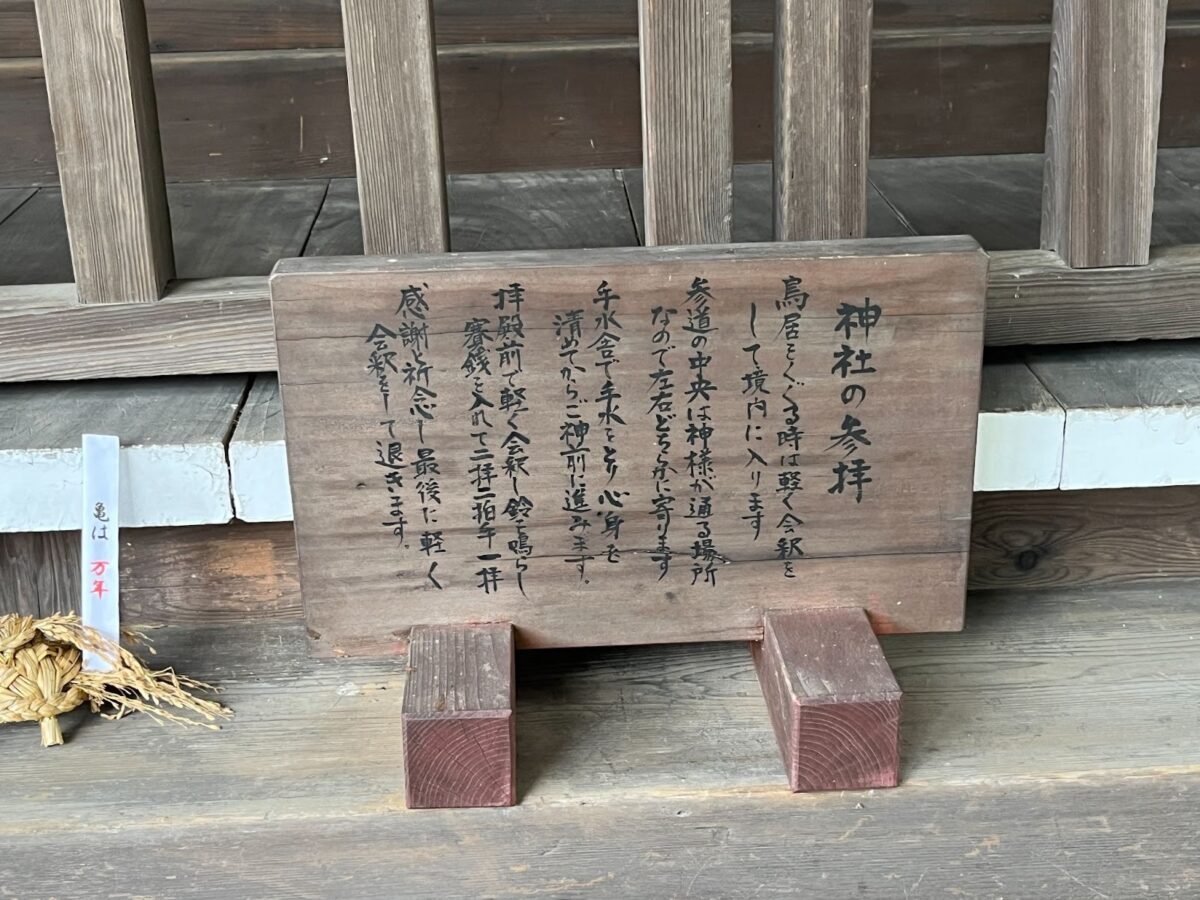 神社の参拝
鳥居をくぐる時は軽く会釈を
して境内に入ります
参道の中央は神様が通る場所
なので左右どちらかに寄ります
手水舎で手水をとり心身を
清めてからご神前に進みます。
拝殿前で軽く会釈し鈴を鳴らし
賽銭を入れて二拝二拍手一拝
感謝と祈念し最後に軽く
会釈をして退きます。
亀は万年